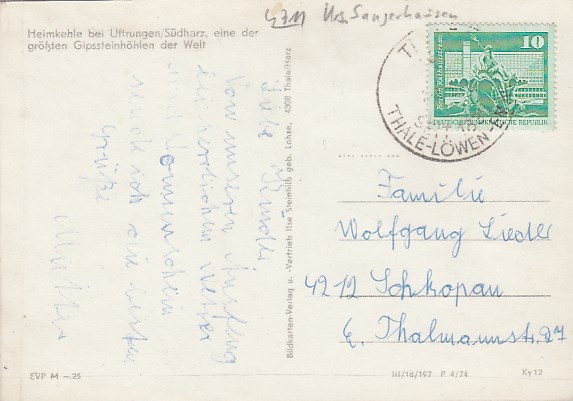 4711 Krs. Sangerhausen
Heimkehle bei Uftrungen/Südharz, eine der
größten Gipssteinhöhlen der Welt
Liebe Kinder
Von unserem Ausflug
bei herrlichem Wetter
und Sonnenschein
sende ich die besten
Grüße
Mutter
Bildkarten-Verlag u. -Vertrieb Ilse Steinhilb geb. Lohse, 4308 Thale/Harz
10
DEUTSCHE DEMOKRATISCHE REPUBLIK
THALE-LÖWEN
Familie
Wolfgang Lieder
4212 Schkopau
E. Thälmannstr. 27
EVP M -,25
III/18/197 P 4/74 Ky 12